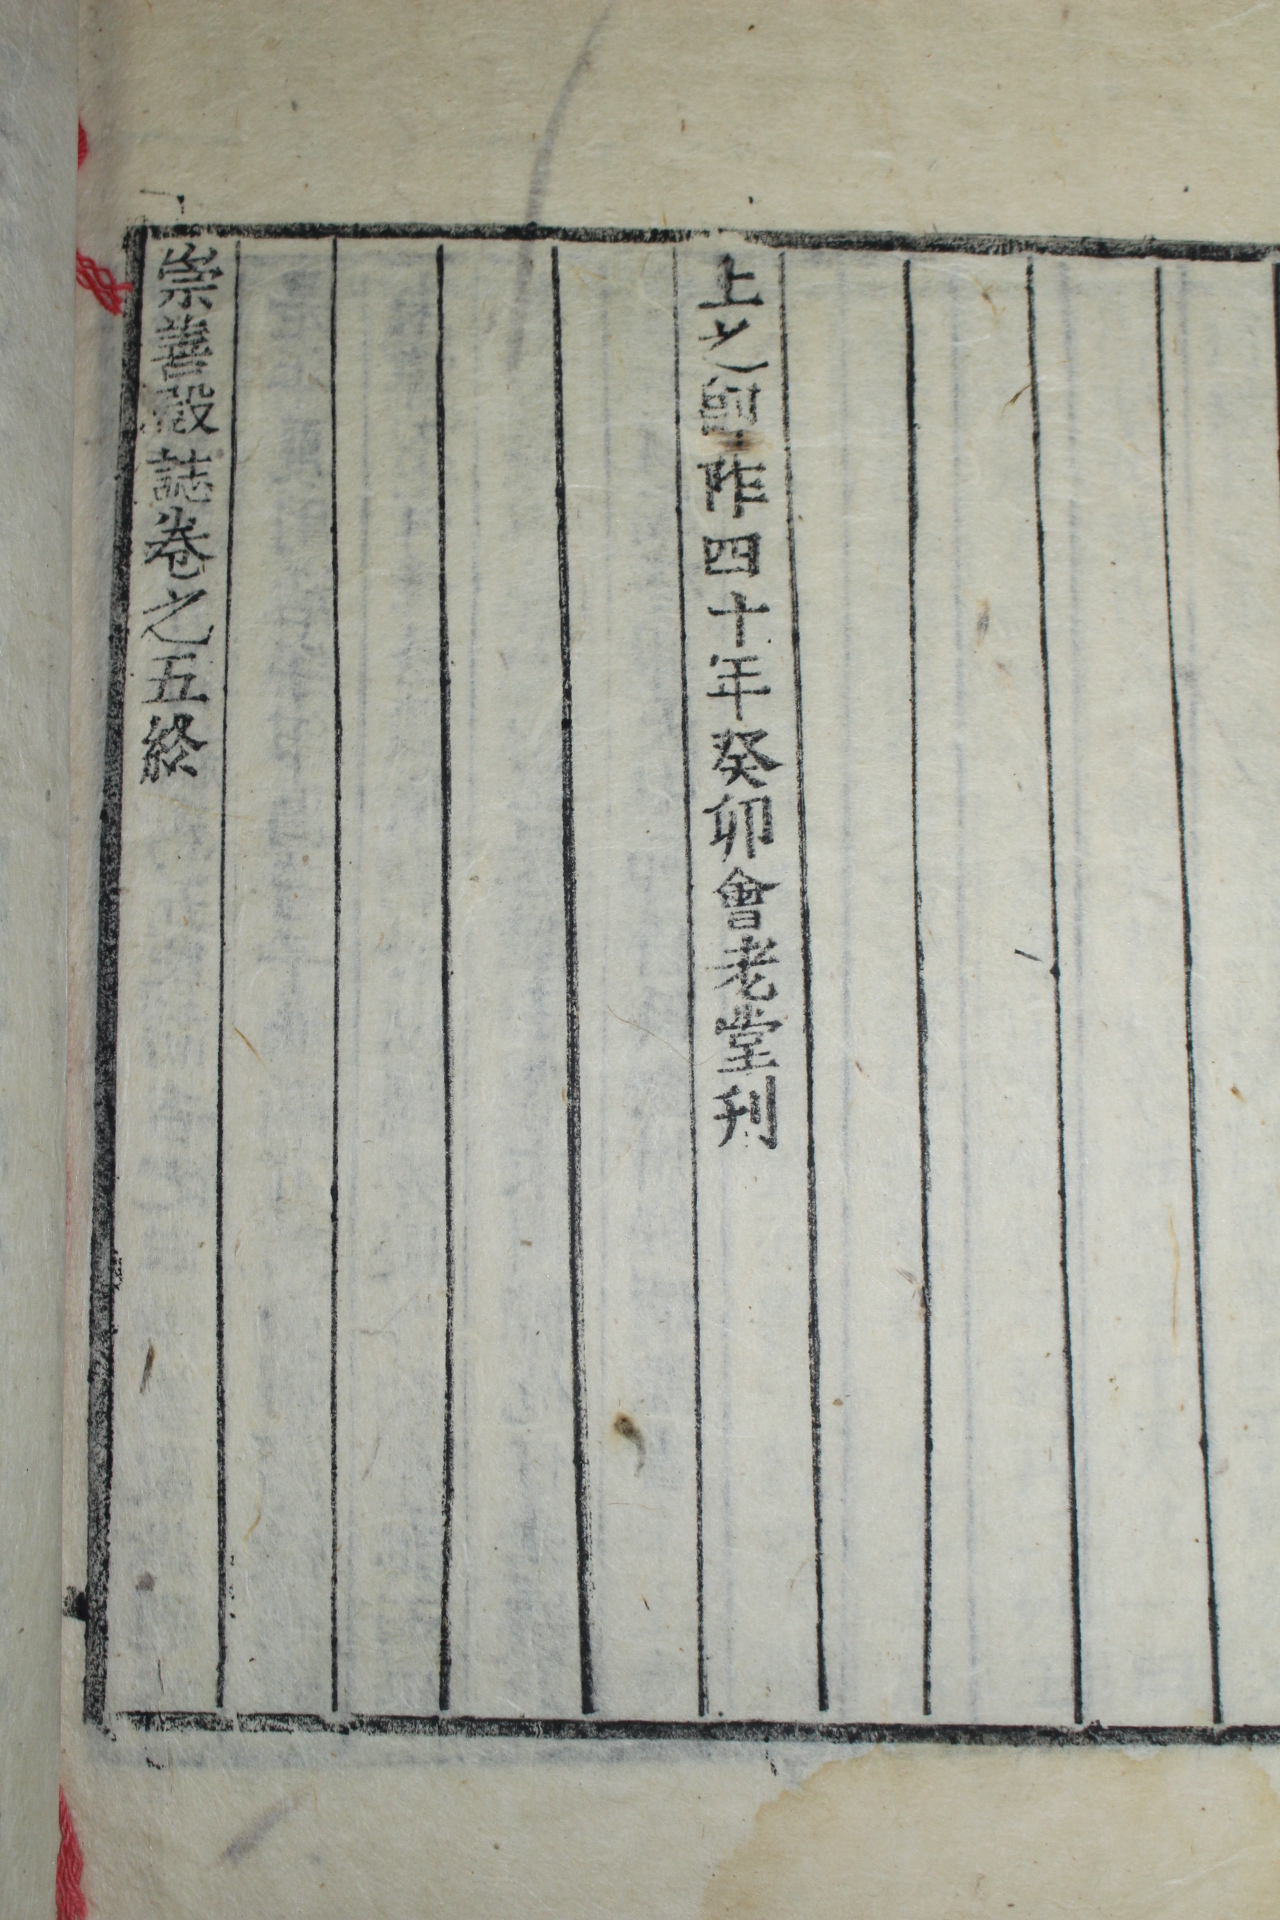 上之卽阼四十年癸卯會老堂刊
崇善殿誌卷之五終